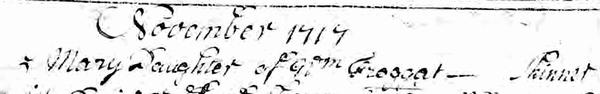 November 1717
Mary Daughter of Wm Froggat — Skinner